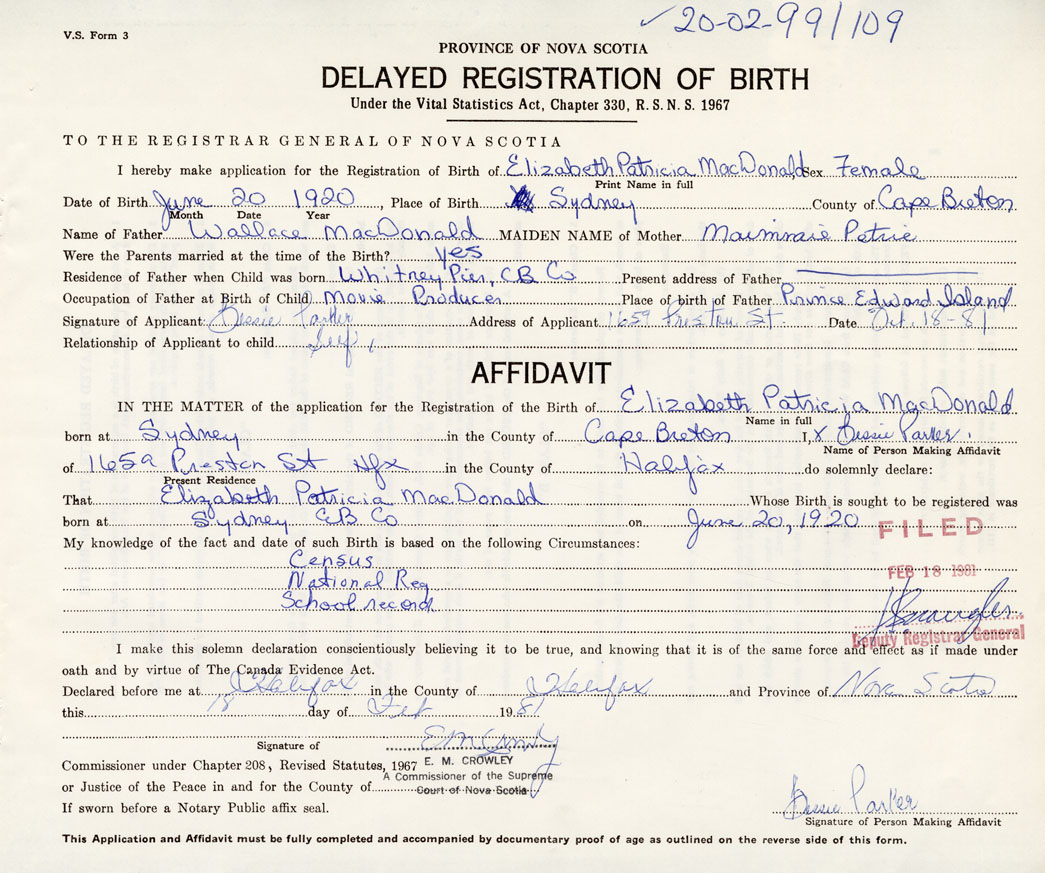 ✓ 20-02-99/109
V.S. Form 3
PROVINCE OF NOVA SCOTIA
DELAYED REGISTRATION OF BIRTH
Under the Vital Statistics Act, Chapter 330, R. S. N. S. 1967
TO THE REGISTRAR GENERAL OF NOVA SCOTIA
I hereby make application for the Registration of Birth of Elizabeth Patricia MacDonald Sex Female
Print Name in full
Date of Birth June 20 1920, Place of Birth Sydney County of Cape Breton
Month Date Year
Name of Father Wallace MacDonald MAIDEN NAME of Mother Petrie
Were the Parents married at the time of the Birth? yes
Residence of Father when Child was born Whitney Pier, CB Co Present address of Father
Occupation of Father at Birth of Child Movie Producer Place of birth of Father Prince Edward Island
Signature of Applicant: Bessie Parker Address of Applicant 1659 Preston St. Date Oct. 18-81
Relationship of Applicant to child Self
AFFIDAVIT
IN THE MATTER of the application for the Registration of the Birth of Elizabeth Patricia MacDonald
Name in full
born at Sydney in the County of Cape Breton I, x Bessie Parker
Name of Person Making Affidavit
of 1659 Preston St Hfx in the County of Halifax do solemnly declare:
Present Residence
That Elizabeth Patricia MacDonald Whose Birth is sought to be registered was
born at Sydney CB Co on June 20, 1920
FILED
My knowledge of the fact and date of such Birth is based on the following Circumstances:
Census
National Reg
FEB 18 1981
School record
Deputy Registrar General
I make this solemn declaration conscientiously believing it to be true, and knowing that it is of the same force and effect as if made under
oath and by virtue of The Canada Evidence Act.
Declared before me at Halifax in the County of Halifax and Province of Nova Scotia
this 18 day of Feb 1981
Signature of
Commissioner under Chapter 208, Revised Statutes, 1967 E. M. CROWLEY
A Commissioner of the Supreme
or Justice of the Peace in and for the County of Court of Nova Scotia
If sworn before a Notary Public affix seal.
Bessie Parker
Signature of Person Making Affidavit
This Application and Affidavit must be fully completed and accompanied by documentary proof of age as outlined on the reverse side of this form.